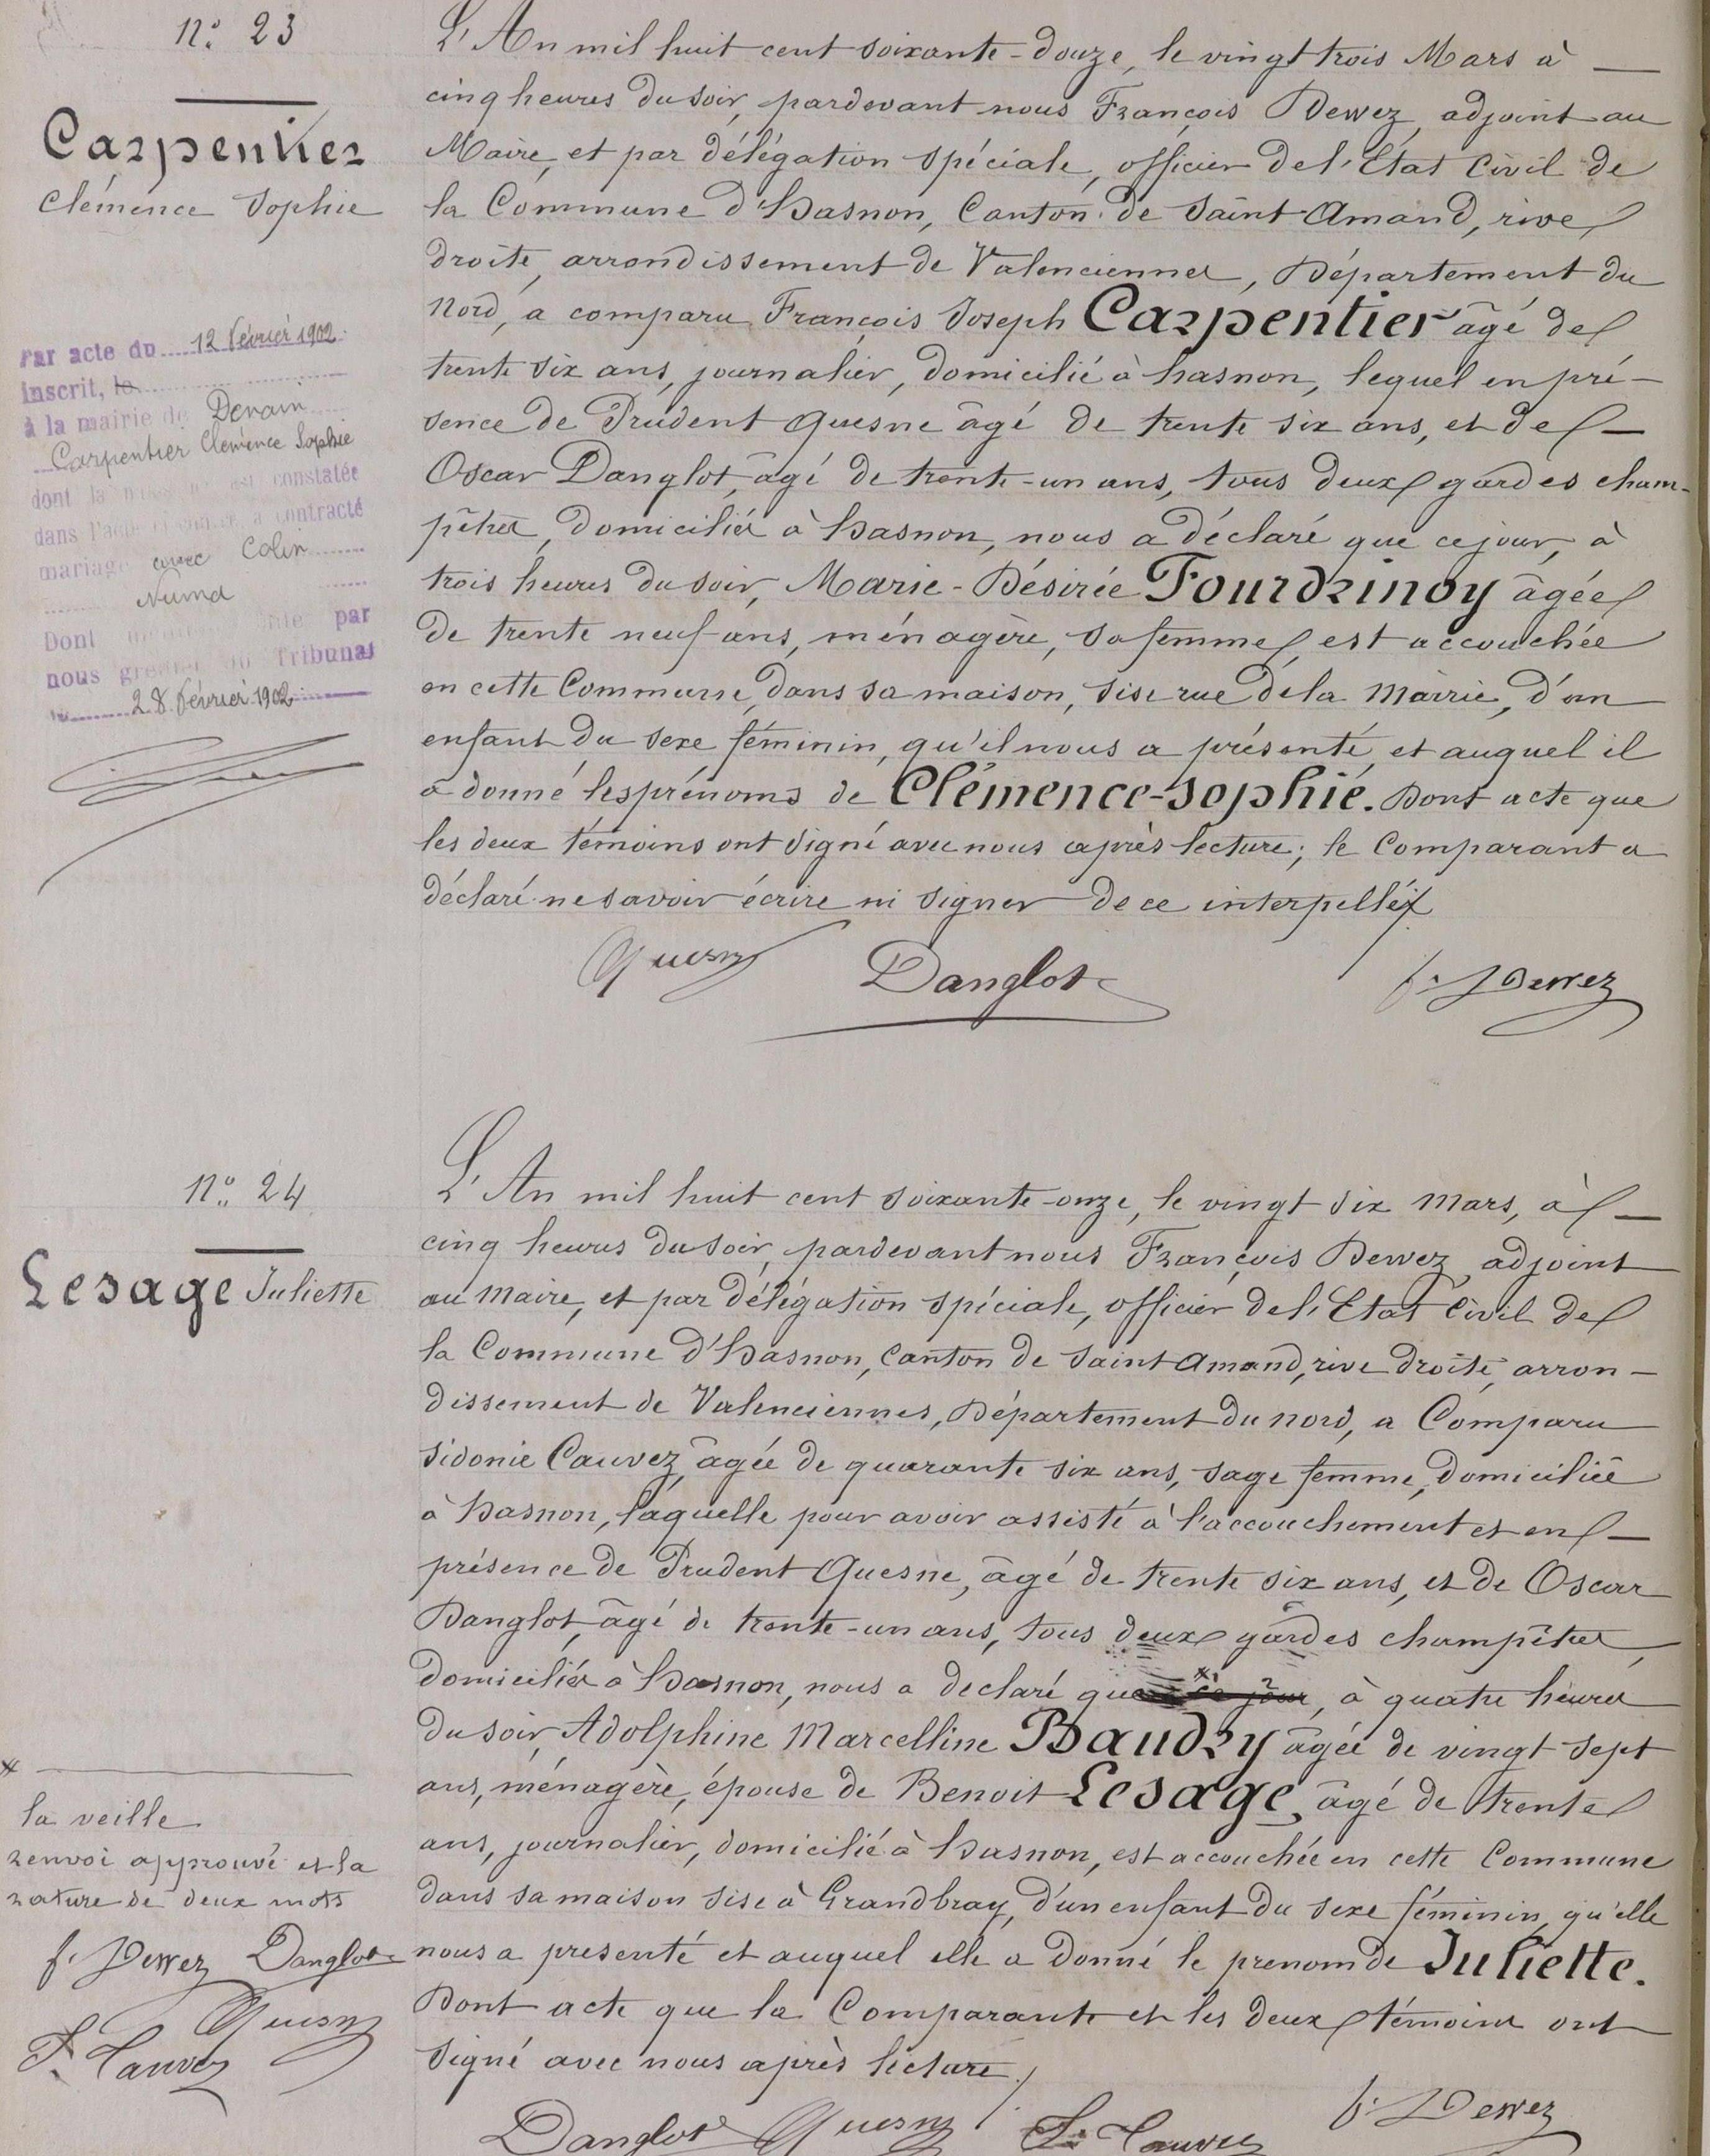 N.° 23
Carpentier
Clémence Sophie
Par acte du 12 février 1902
inscrit, le
à la mairie de Denain
Carpentier Clémence Sophie
dont la naissance est constatée
dans l'acte ci-contre a contracté
mariage avec Colin
Numa
Dont mention faite par
nous greffier du Tribunal
le 28 février 1902
L'An mil huit cent soixante-douze, le vingt trois Mars à
cinq heures du soir, pardevant nous François Dewez, adjoint au
Maire, et par délégation spéciale, officier de l'État Civil de
la Commune d'hasnon, Canton de Saint Amand, rive
droite, arrondissement de Valenciennes, Département du
Nord, a comparu François Joseph Carpentier âgé de
trente six ans, journalier, domicilié à hasnon, lequel en pré-
sence de Prudent Quesne âgé de trente six ans, et de
Oscar Danglot, âgé de trente-un ans, tous deux gardes cham-
pêtres, domiciliés à hasnon, nous a déclaré que ce jour, à
trois heures du soir, Marie-Désirée Fourdrinoy âgée
de trente neuf ans, ménagère, sa femme, est accouchée
en cette Commune, dans sa maison, sise rue de la Mairie, d'un
enfant du sexe féminin, qu'il nous a présenté, et auquel il
a donné les prénoms de Clémence-Sophie. Dont acte que
les deux témoins ont signé avec nous après lecture; le Comparant a
déclaré ne savoir écrire ni signer de ce interpellé
Quesne Danglot f. Dewez
N.° 24
Lesage Juliette
L'An mil huit cent soixante-onze, le vingt six Mars, à
cinq heures du soir, pardevant nous François Dewez, adjoint
au Maire, et par délégation spéciale, officier de l'État Civil de
la Commune d'hasnon, Canton de Saint Amand, rive droite, arron-
dissement de Valenciennes, Département du nord, a Comparu
Sidonie Cauvez, âgée de quarante six ans, sage femme, domiciliée
à hasnon, laquelle pour avoir assisté à l'accouchement et en
présence de Prudent Quesne, âgé de trente six ans, et de Oscar
Danglot, âgé de trente-un ans, tous deux gardes champêtres,
domiciliés à hasnon, nous a declaré que ce jour, à quatre heures
du soir, Adolphine Marcelline Baudry âgée de vingt sept
ans, ménagère, épouse de Benoit Lesage, âgé de trente
ans, journalier, domicilié à hasnon, est accouchée en cette Commune
dans sa maison sise à Grandbray, d'un enfant du sexe féminin, qu'elle
nous a presenté et auquel elle a donné le prenom de Juliette.
Dont acte que la Comparante et les deux témoins ont
signé avec nous après lecture.
x
la veille
renvoi approuvé et la
rature de deux mots
f. Dewez Danglot
Quesne
S. Cauvez
Danglot Quesne S. Cauvez f. Dewez